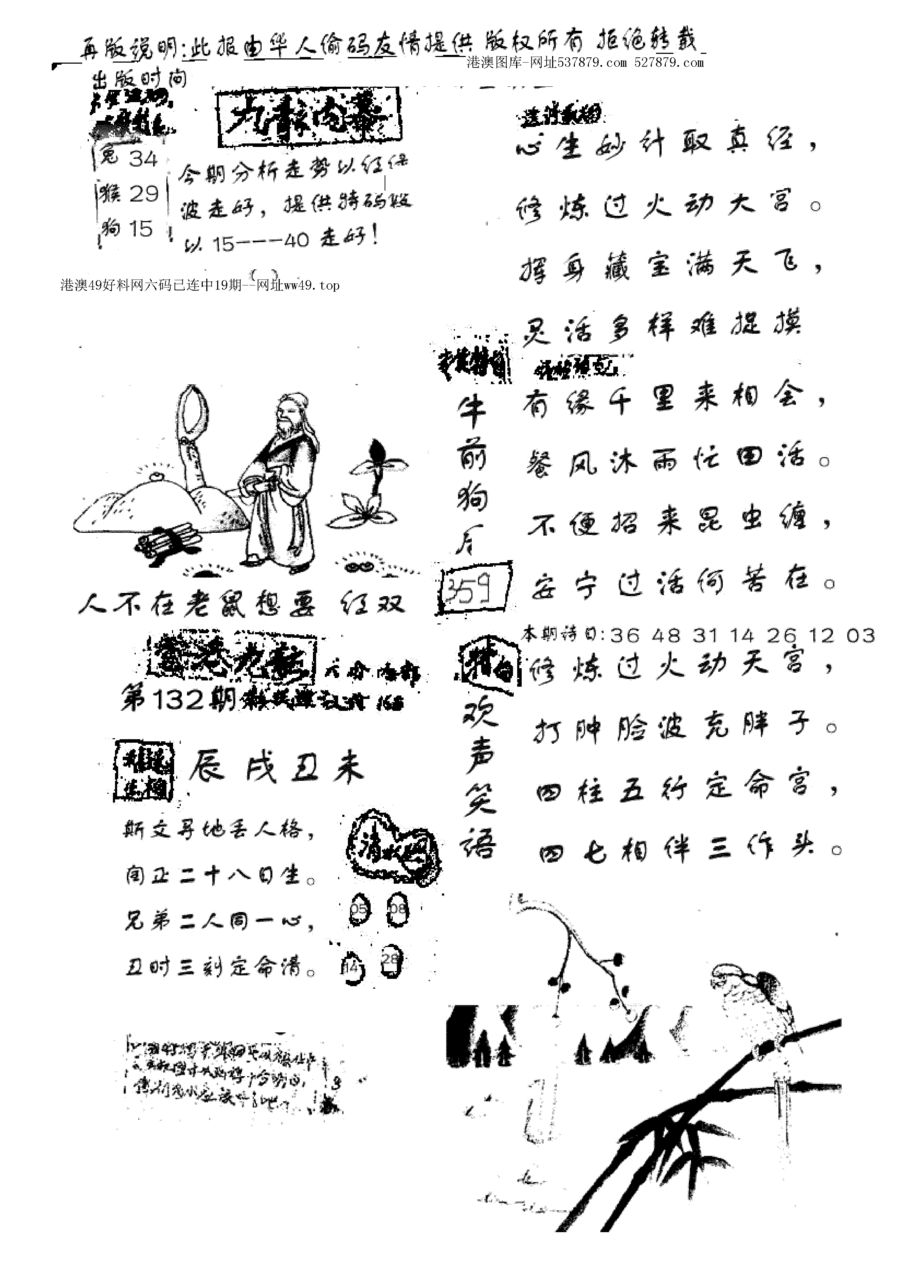 再版说明:此报由华人偷码友情提供 版权所有 拒绝转载
港澳图库-网址537879.com 527879.com
出版时间
九龍内幕
兔 34
猴 29
狗 15
今期分析走势以红绿
波走好，提供特码段
以15---40走好!
港澳49好料网六码已连中19期--网址ww49.top
心生妙计取真经，
修炼过火动大宫。
挥身藏宝满天飞，
灵活多样难捉摸
有缘千里来相会，
餐风沐雨忙田活。
不便招来昆虫缠，
安宁过活何苦在。
牛前狗后
359
人不在老鼠想要 红双
本期诗曰:36 48 31 14 26 12 03
第132期
修炼过火动天宫，
打肿脸波充胖子。
四柱五行定命宫，
四七相伴三作头。
欢声笑语
辰戌丑未
斯文寻地丢人格，
闰正二十八日生。
兄弟二人同一心，
丑时三刻定命清。
05 08
14 28